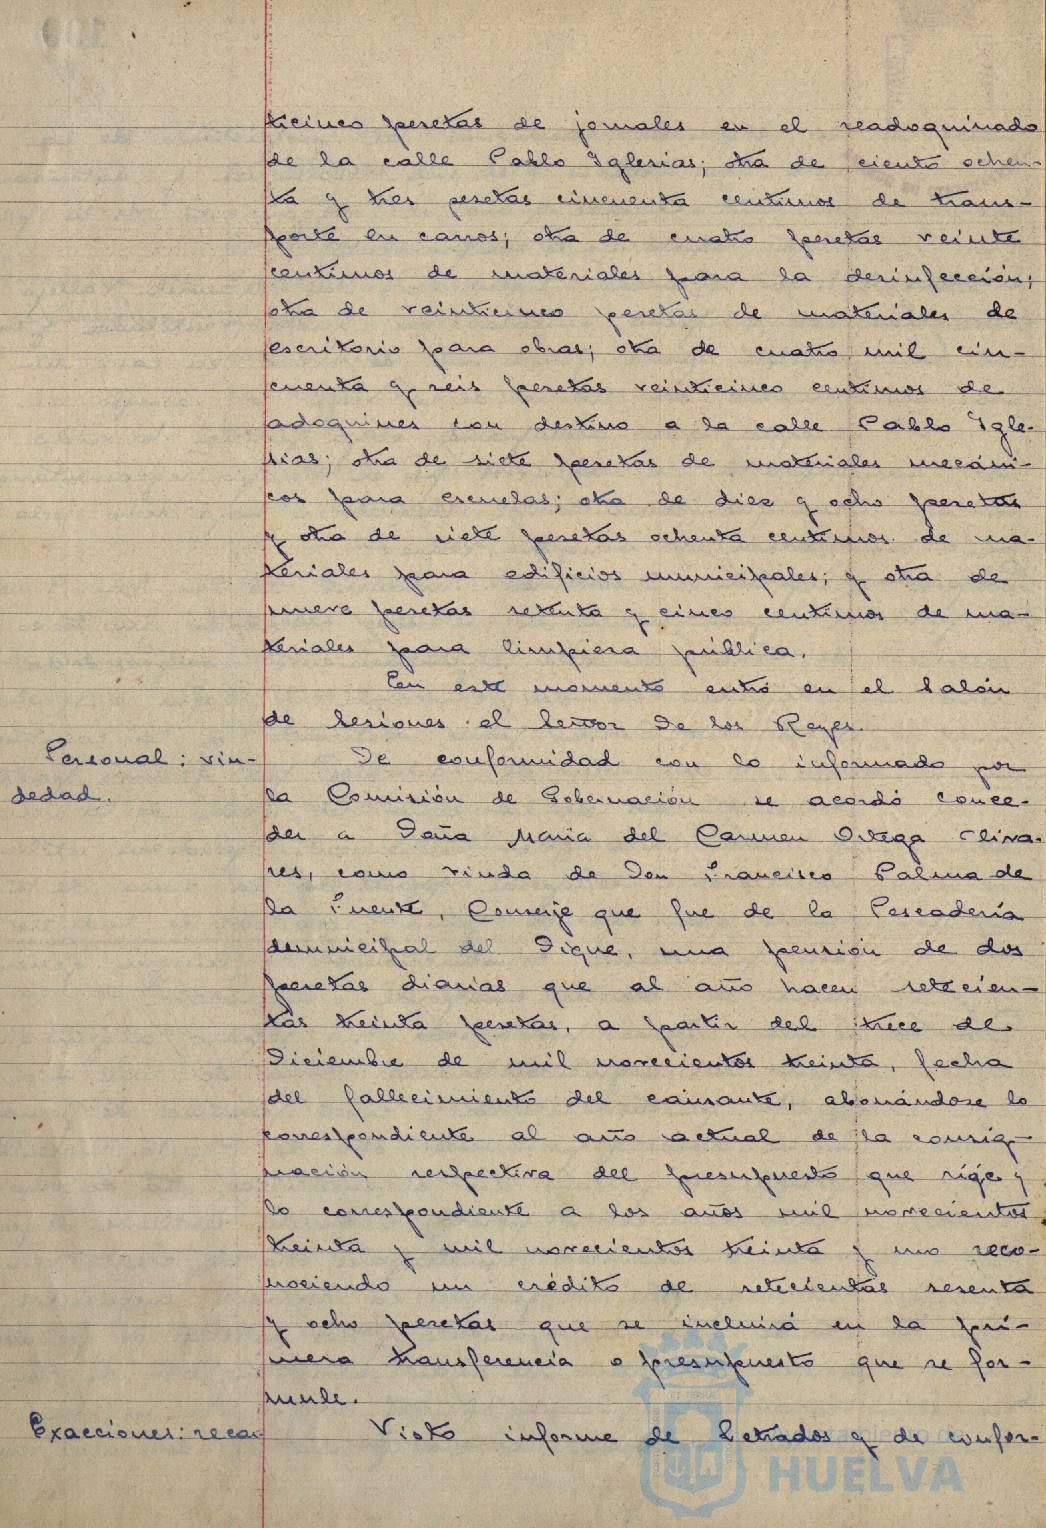 ticinco pesetas de jornales en el readoquinado
de la calle Pablo Iglesias; otra de ciento ochen-
ta y tres pesetas cincuenta centimos de trans-
porte en carros; otra de cuatro pesetas veinte
centimos de materiales para la desinfección;
otra de veinticinco pesetas de materiales de
escritorio para obras; otra de cuatro mil cin-
cuenta y seis pesetas veinticinco centimos de
adoquines con destino a la calle Pablo Igle-
sias; otra de siete pesetas de materiales mecáni-
cos para escuelas; otra de diez y ocho pesetas
y otra de siete pesetas ochenta centimos de ma-
teriales para edificios municipales; y otra de
nueve pesetas setenta y cinco centimos de ma-
teriales para limpieza pública.
En este momento entró en el Salón
de Sesiones el Señor De los Reyes.
Personal: viu-
dedad.
De conformidad con lo informado por
la Comisión de Gobernación se acordó conce-
der a Doña Maria del Carmen Ortega Oliva-
res, como viuda de Don Francisco Palma de
la Fuente, Conserje que fue de la Pescadería
municipal del Dique, una pensión de dos
pesetas diarias que al año hacen setecien-
tas treinta pesetas, a partir del trece de
Diciembre de mil novecientos treinta, fecha
del fallecimiento del causante, abonándose lo
correspondiente al año actual de la consig-
nación respectiva del presupuesto que rige y
lo correspondiente a los años mil novecientos
treinta y mil novecientos treinta y uno reco-
nociendo un crédito de setecientas sesenta
y ocho pesetas que se incluirá en la pri-
mera transferencia o presupuesto que se for-
mule.
Exacciones: recar-
Visto informe de Letrados y de confor-
HUELVA